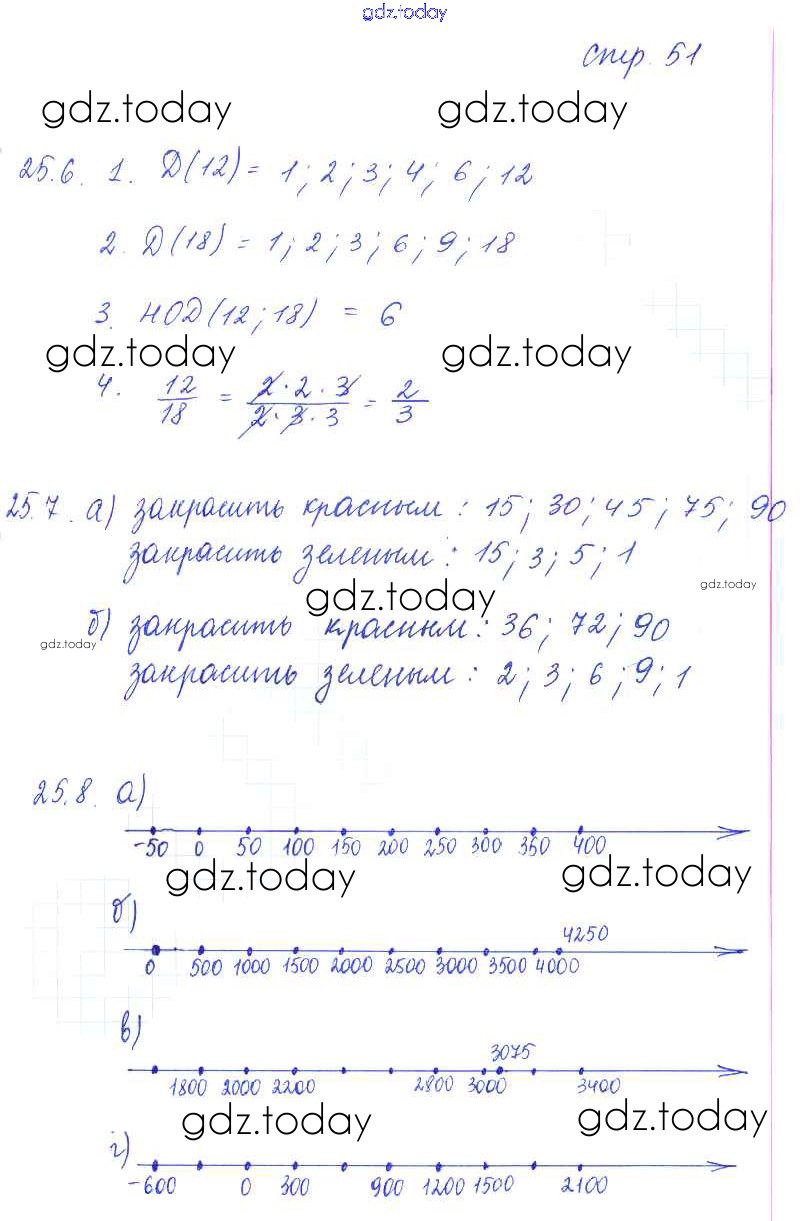 gdz.today
стр. 51
gdz.today gdz.today
25.6. 1. D(12) = 1; 2; 3; 4; 6; 12
2. D(18) = 1; 2; 3; 6; 9; 18
3. НОD(12; 18) = 6
gdz.today gdz.today
4. 12/18 = 2·2·3/2·3·3 = 2/3
25.7. а) закрасить красным: 15; 30; 45; 75; 90
закрасить зеленым: 15; 3; 5; 1
gdz.today gdz.today
б) закрасить красным: 36; 72; 90
gdz.today
закрасить зеленым: 2; 3; 6; 9; 1
25.8. а)
-50 0 50 100 150 200 250 300 350 400
gdz.today gdz.today
б)
4250
0 500 1000 1500 2000 2500 3000 3500 4000
в)
3075
1800 2000 2200 2800 3000 3400
gdz.today gdz.today
г)
-600 0 300 900 1200 1500 2100